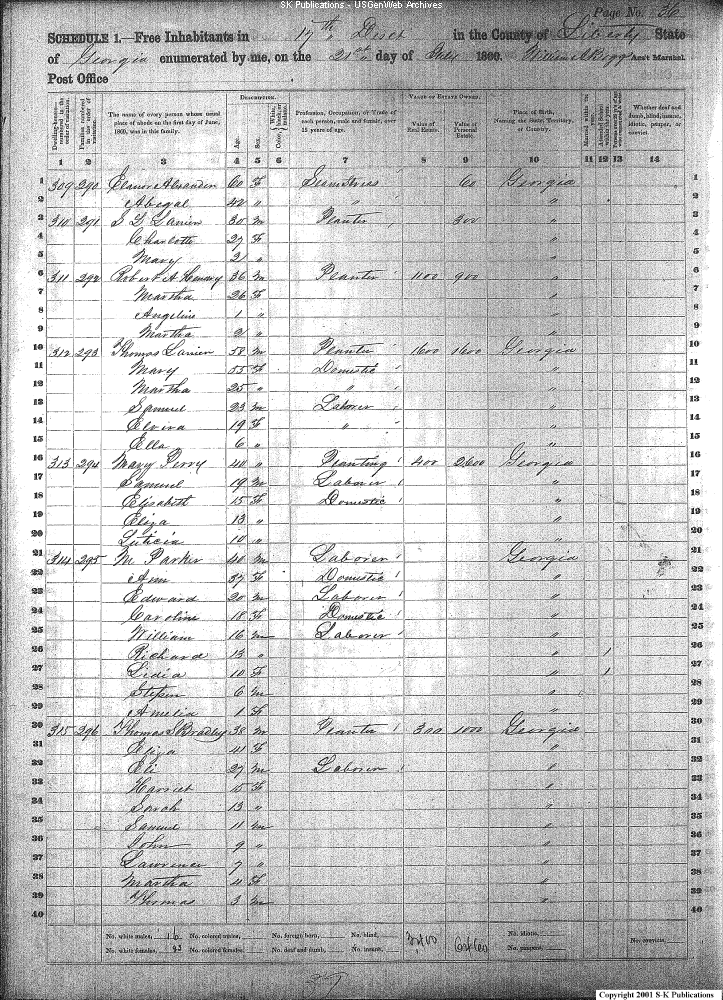 SK Publications - USGenWeb Archives
Page No. 36
SCHEDULE 1.—Free Inhabitants in 17th Dist in the County of Liberty State
of Georgia enumerated by me, on the 21st day of July 1860. Ass't Marshal.
Post Office
Dwelling-houses—numbered in the order of visitation.
Families numbered in the order of visitation.
The name of every person whose usual place of abode on the first day of June, 1860, was in this family.
DESCRIPTION.
Age.
Sex.
Color, { White, black, or mulatto.
Profession, Occupation, or Trade of each person, male and female, over 15 years of age.
VALUE OF ESTATE OWNED.
Value of Real Estate.
Value of Personal Estate.
Place of Birth, Naming the State, Territory, or Country.
Married within the year.
Attended School within the year.
Whether deaf and dumb, blind, insane, idiotic, pauper, or convict.
1 2 3 4 5 6 7 8 9 10 11 12 13 14
1 309 290 Elanor Alexander 60 F Seamstress 60 Georgia 1
2 Abigal 42 " " " 2
3 310 291 S Y Lanier 30 M Planter 300 " 3
4 Charlotte 27 F " 4
5 Mary 2 " " 5
6 311 292 Robert A 36 M Planter 1100 900 " 6
7 Martha 26 F " 7
8 Angeline 1 " " 8
9 Martha 2 " " 9
10 312 293 Thomas Lanier 58 M Planter 1600 1600 Georgia 10
11 Mary 55 F Domestic " 11
12 Martha 25 " " " 12
13 Samuel 23 M Laborer " 13
14 Elvira 19 F " " 14
15 Ella 6 " " 15
16 313 294 Mary Perry 40 " Planting 400 2600 Georgia 16
17 Samuel 19 M Laborer " 17
18 Elisabeth 15 F Domestic " 18
19 Eliza 13 " " 19
20 Luticia 10 " " 20
21 314 295 M Parker 40 M Laborer Georgia 21
22 Ann 37 F Domestic " 22
23 Edward 20 M Laborer " 23
24 Caroline 18 F Domestic " 24
25 William 16 M Laborer " 25
26 Richard 13 " " 1 26
27 Lidia 10 F " 1 27
28 Stephen 6 M " 28
29 Amelia 1 F " 29
30 315 296 Thomas S Bradley 38 M Planter 300 1000 Georgia 30
31 Eliza 41 F " 31
32 Eli 27 M Laborer " 32
33 Harriet 15 F " 33
34 Sarah 13 " " 34
35 Samuel 11 M " 35
36 John 9 " " 36
37 Lawrence 7 " " 37
38 Martha 4 F " 38
39 Thomas 3 M " 39
40 40
No. white males, 16 No. colored males, No. foreign born, No. blind, 3400 No. idiotic,
No. white females, 23 No. colored females, No. deaf and dumb, No. insane, No. paupers, No. convicts,
Copyright 2001 S-K Publications